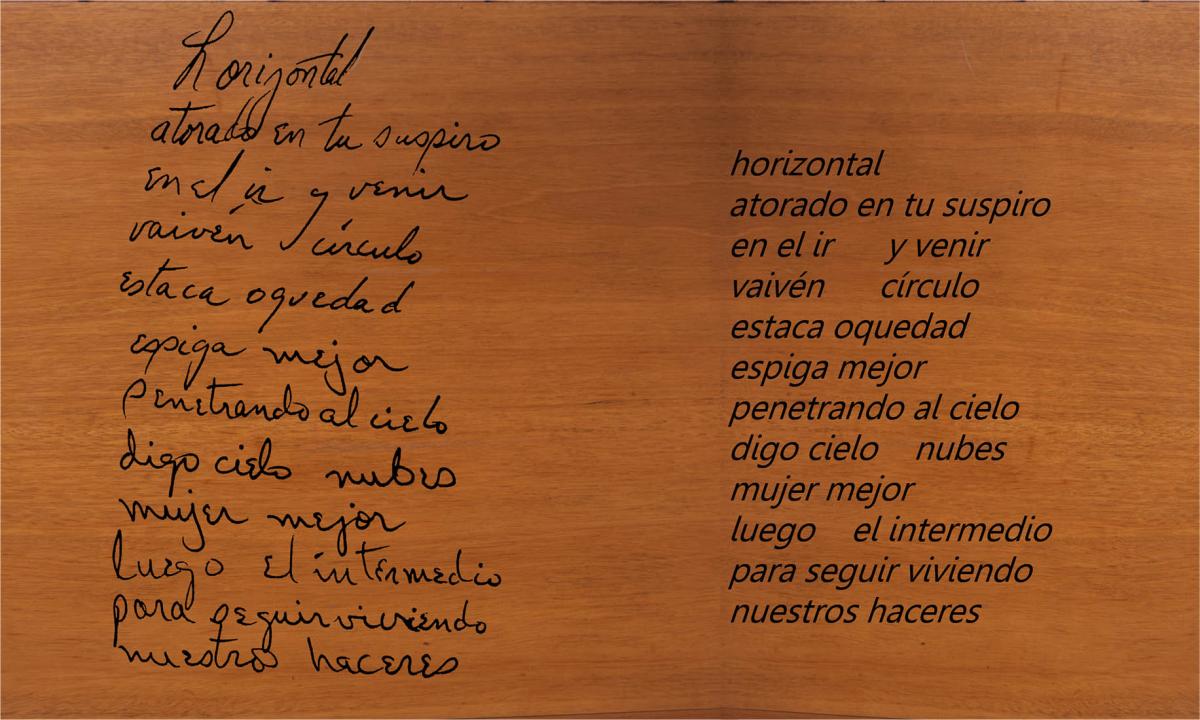 horizontal
atorado en tu suspiro
en el ir y venir
vaivén círculo
estaca oquedad
espiga mejor
penetrando al cielo
digo cielo nubes
mujer mejor
luego el intermedio
para seguir viviendo
nuestros haceres
horizontal
atorado en tu suspiro
en el ir y venir
vaivén círculo
estaca oquedad
espiga mejor
penetrando al cielo
digo cielo nubes
mujer mejor
luego el intermedio
para seguir viviendo
nuestros haceres